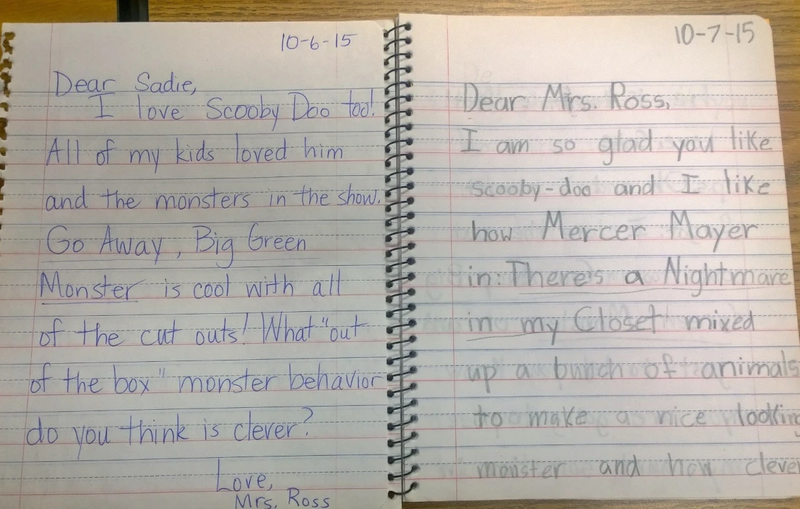 10-6-15
Dear Sadie,
I love Scooby Doo too!
All of my kids loved him
and the monsters in the show.
Go Away, Big Green
Monster is cool with all
of the cut outs! What "out
of the box" monster behavior
do you think is clever?
Love,
Mrs. Ross
10-7-15
Dear Mrs. Ross,
I am so glad you like
scooby-doo and I like
how Mercer Mayer
in: There's a Nightmare
in my Closet mixed
up a bunch of animals
to make a nice looking
monster and how clever